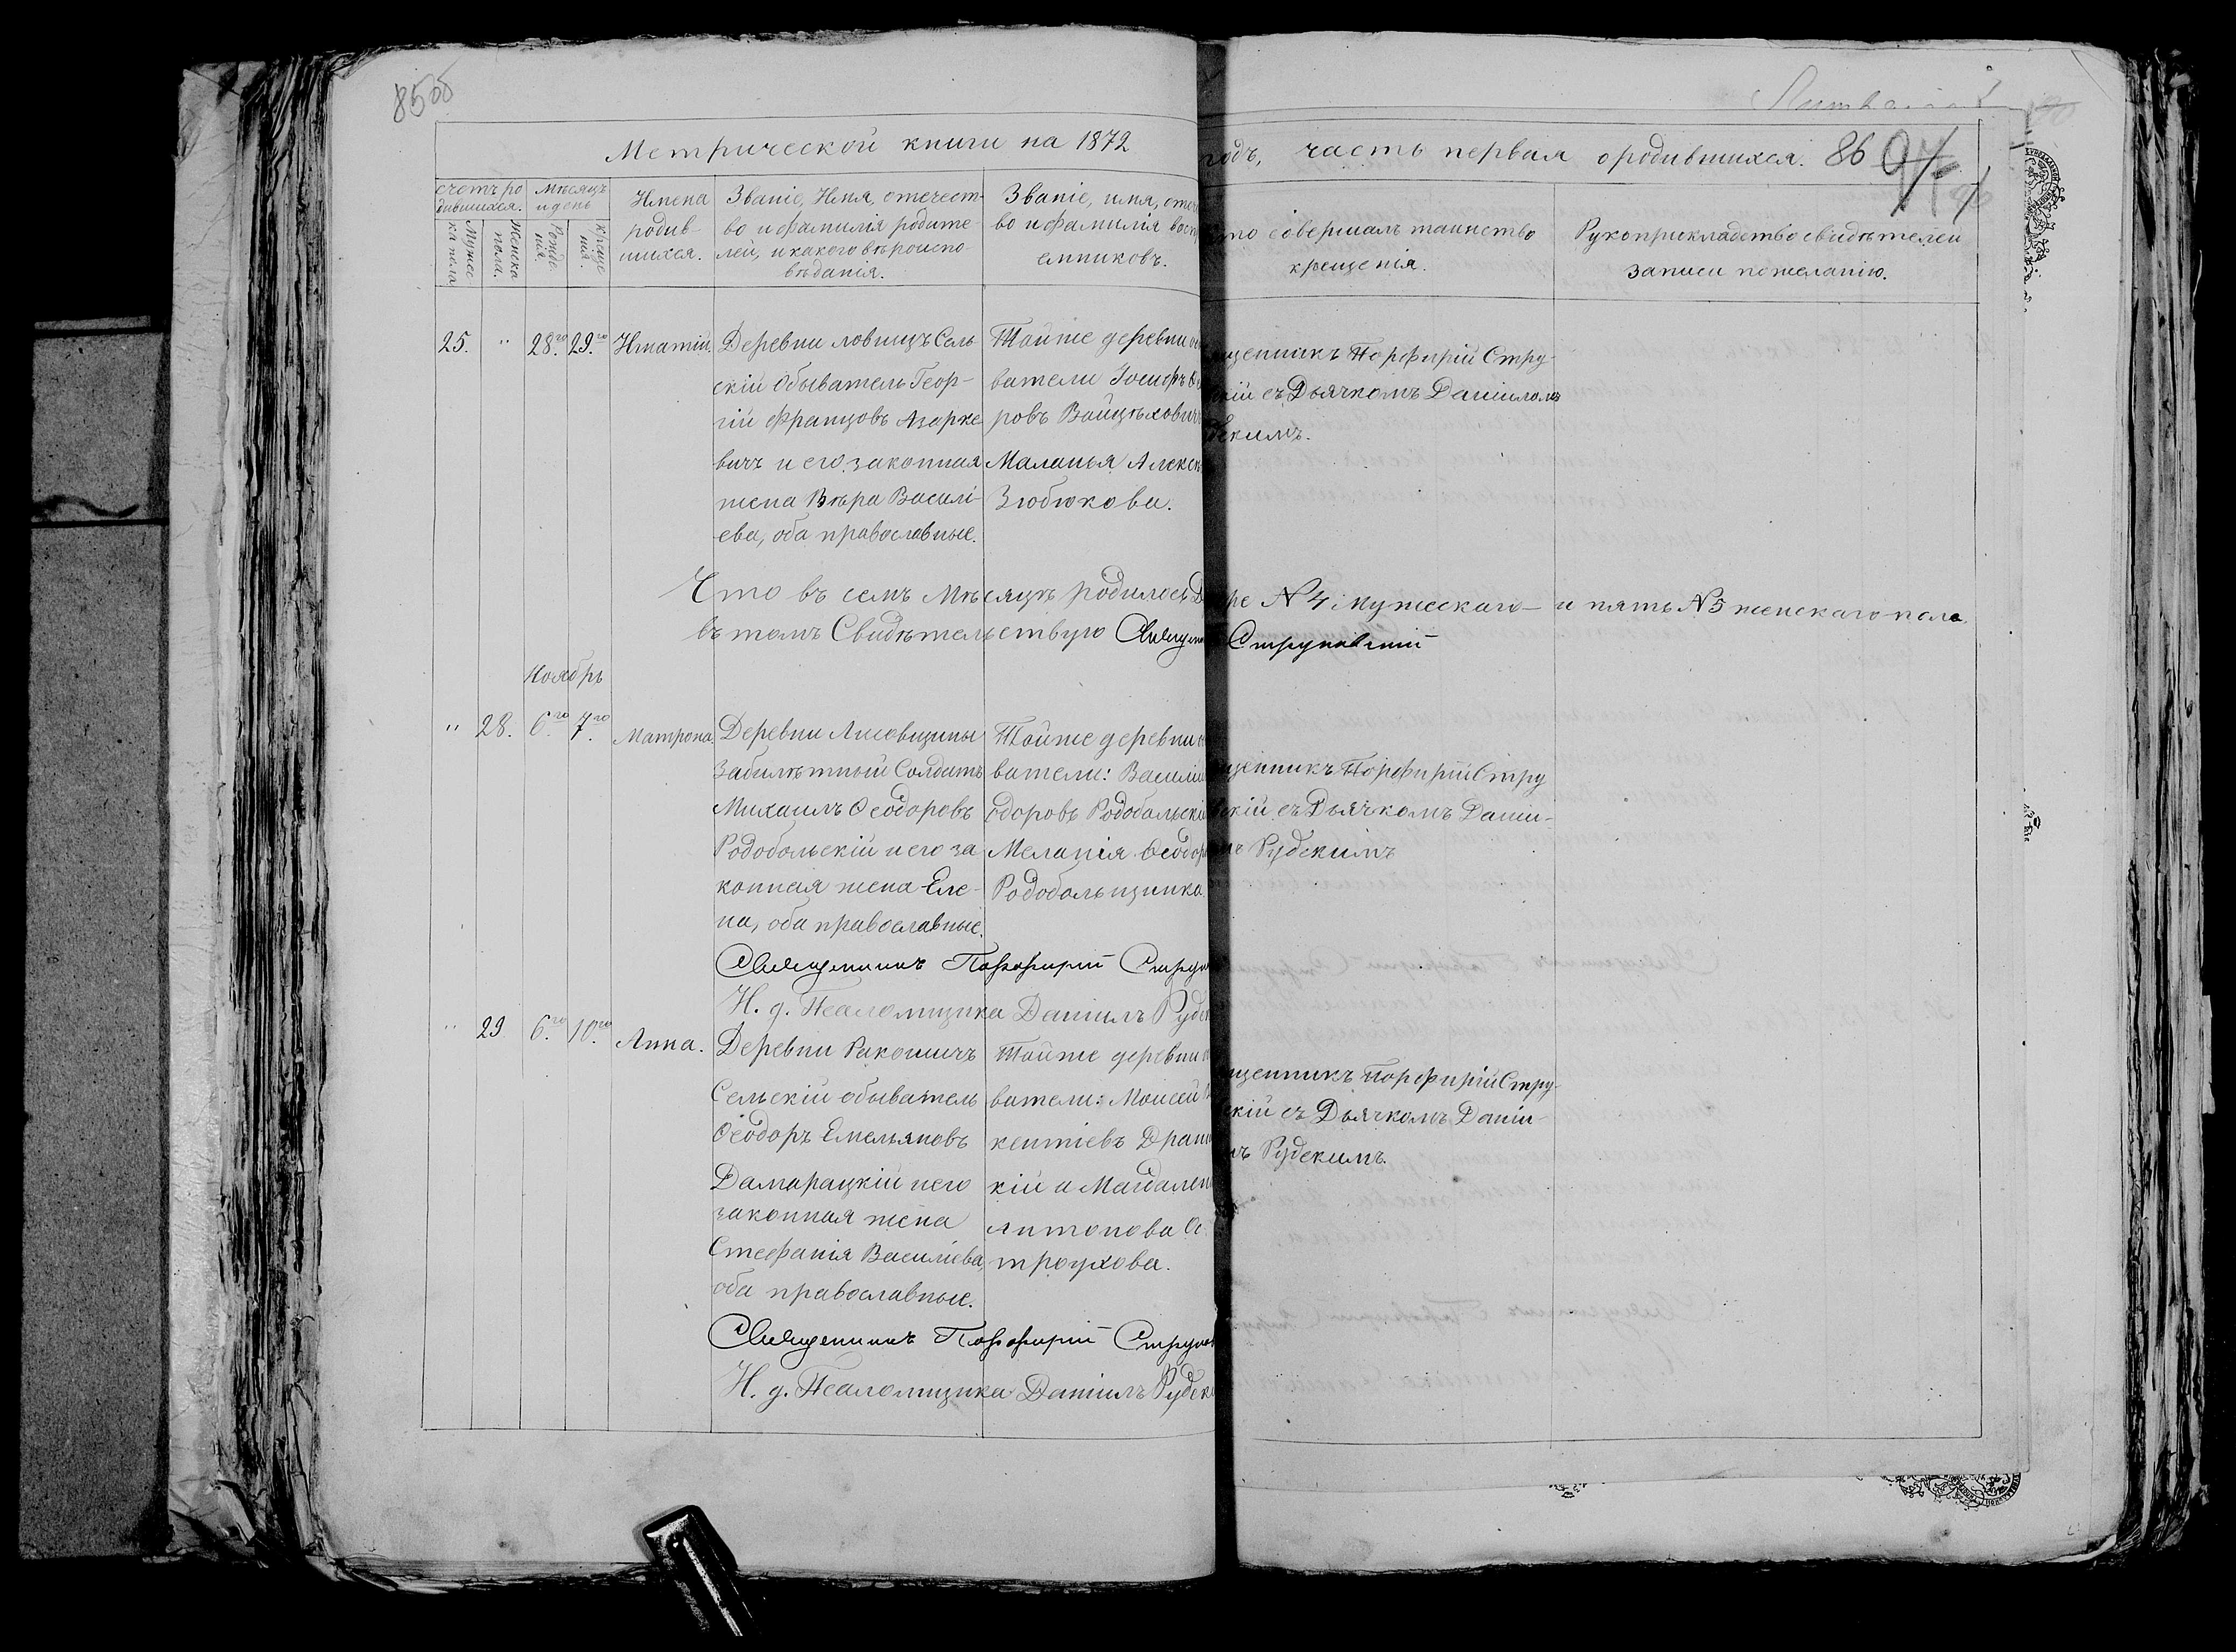 85об
Метрической книги на 1872 годъ, часть первая о родившихся. 86
счетъ ро
дившихся.
Мужес
ка пола
Женска
пола.
Мѣсяцъ
и день
Рожде
нія.
Креще
нія.
Имена
родив-
шихся.
Званіе, Имя, отчест-
во и фамилія родите
лей, и какого вѣроиспо-
вѣданія.
Званіе, имя, отч
во и фамилія восп
емниковъ.
то совершалъ таинство
крещенія.
Рукоприкладство свидѣтелей
записи по желанію.
25. " 28.го 29.го
Игнатій.
Деревни Ловищъ Сель
скій Обыватель Геор-
гій Францовъ Азарке
вичъ и его законная
жена Вѣра Василі-
ева, оба православные.
Тойже деревни
ватели Іосифъ
ровъ Войцѣхович
Маланья Алекс
Зюбюкова.
щенникъ Порфирій Стру-
скій съ Дьячкомъ Даніиломъ
дскимъ.
Что въ семъ Мѣсяцѣ родилось ре № 4 мужескаго и пять № 5 женскаго пола
въ томъ Свидѣтельствую Священ Струковскій
Ноябрь
" 28. 6.го 7.го
Матрона.
Деревни Лисовщины
Забилѣтный Солдатъ
Михаилъ Ѳеодоровъ
Родобольскій и его за
конная жена Еле-
на, оба православные.
Тойже деревни
ватели: Василій
одоровъ Родобольскій
Меланія Ѳеодор
Родобольщинка.
щенникъ Порфирій Стру
скій съ Дьячкомъ Даніи-
мъ Рудскимъ
Священникъ Порфирій Струк
И. д. Псаломщика Даніилъ Рудск
" 29 6.го 10.го
Анна.
Деревни Ракошичъ
Сельскій обыватель
Ѳеодоръ Емельяновъ
Дамарацкій и его
законная жена
Стефанія Василіева,
оба православные.
Тойже деревни
ватели: Моисей
кентіевъ Драни
кій и Магдален
Антонова Ос
троухова.
щенникъ Порфирій Стру-
скій съ Дьячкомъ Даніи-
мъ Рудскимъ.
Священникъ Порфирій Струков
И. д. Псаломщика Даніилъ Рудск